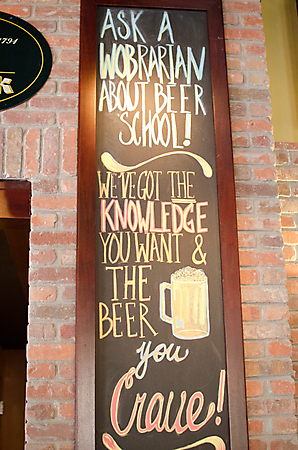 1791
K
ASK A
WOBRARIAN
ABOUT BEER
SCHOOL!
WE'VE GOT THE
KNOWLEDGE
YOU WANT &
THE
BEER
you
Crave!